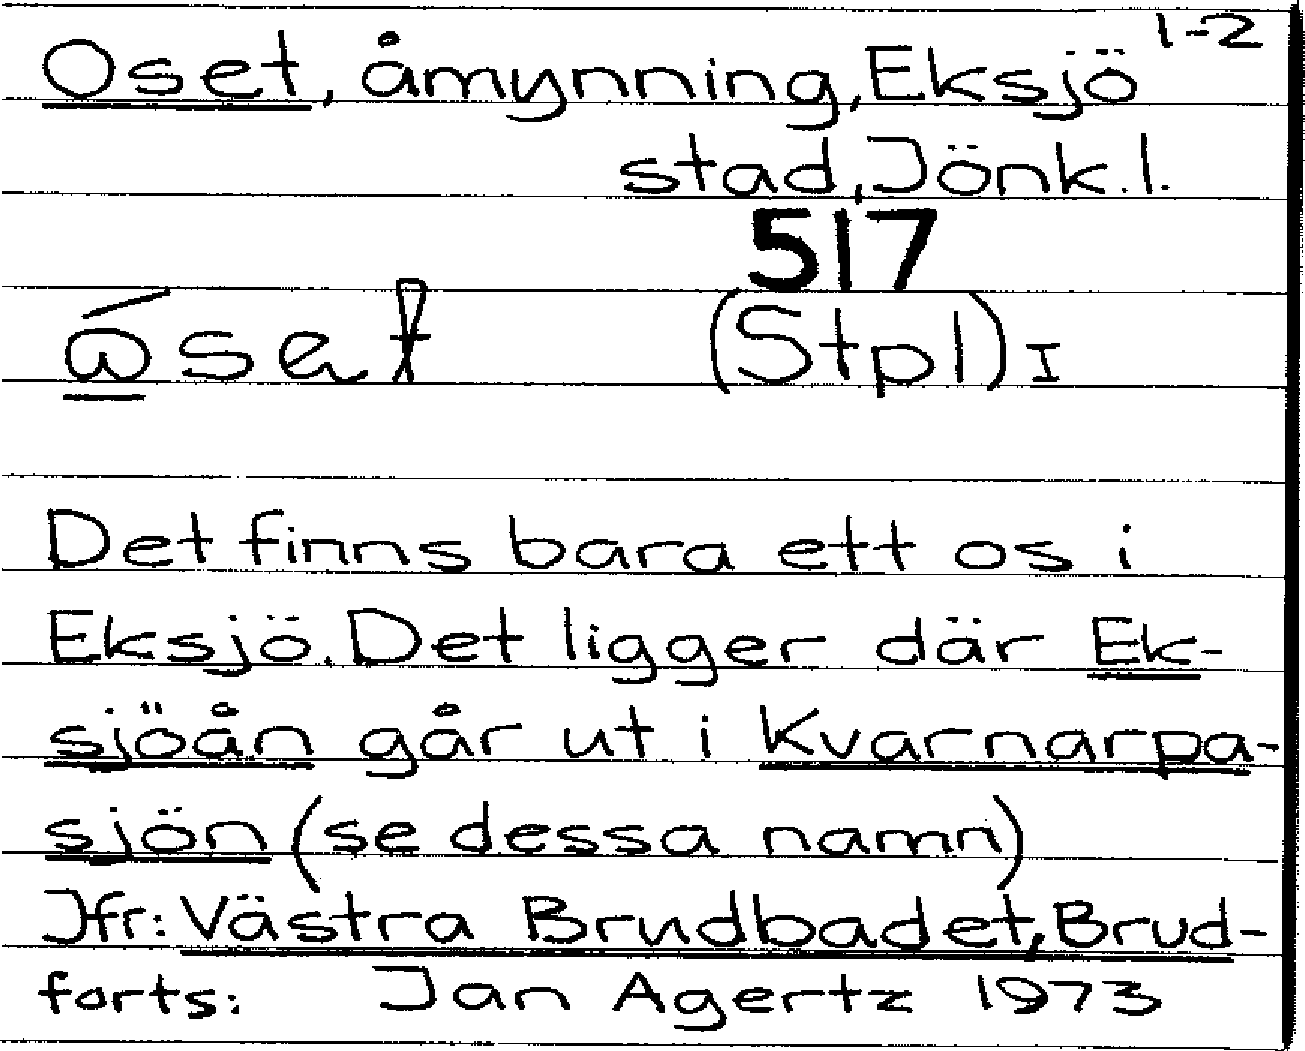 1-2
Oset, åmynning, Eksjö
stad, Jönk.l.
517
(Stpl) I
Det finns bara ett os i
Eksjö. Det ligger där Ek-
sjöån går ut i Kvarnarpa-
sjön (se dessa namn)
Jfr: Västra Brudbadet, Brud-
forts: Jan Agertz 1973